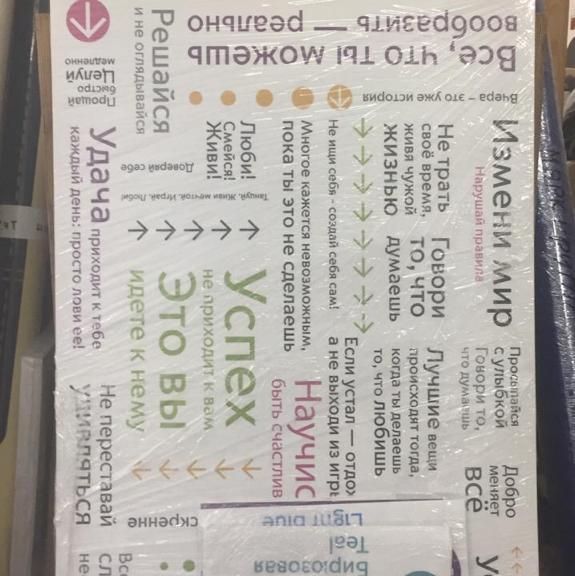 Всё, что ты можешь
вообразить — реально
Вчера – это уже история
Решайся
и не оглядывайся
Прощай
быстро
Целуй
медленно
Удача приходит к тебе
каждый день: просто лови ее!
Доверяй себе
Люби!
Смейся!
Живи!
Танцуй. Живи мечтой. Играй. Люби!
Многое кажется невозможным,
пока ты это не сделаешь
Не ищи себя - создай себя сам!
Не трать
своё время,
живя чужой
жизнью
Измени мир
Нарушай правила
Говори
то, что
думаешь
Успех
не приходит к вам
Это вы
идете к нему
Если устал — отдо
а не выходи из игры
Научис
быть счастлив
Лучшие вещи
происходят тогда,
когда ты делаешь
то, что любишь
Просыпайся
с улыбкой
Говори то,
что думаешь
Не переставай
удивляться
Добро
меняет
всё
скренне
Light blue
Teal
Бирюзовая
Всё
сл
не
У